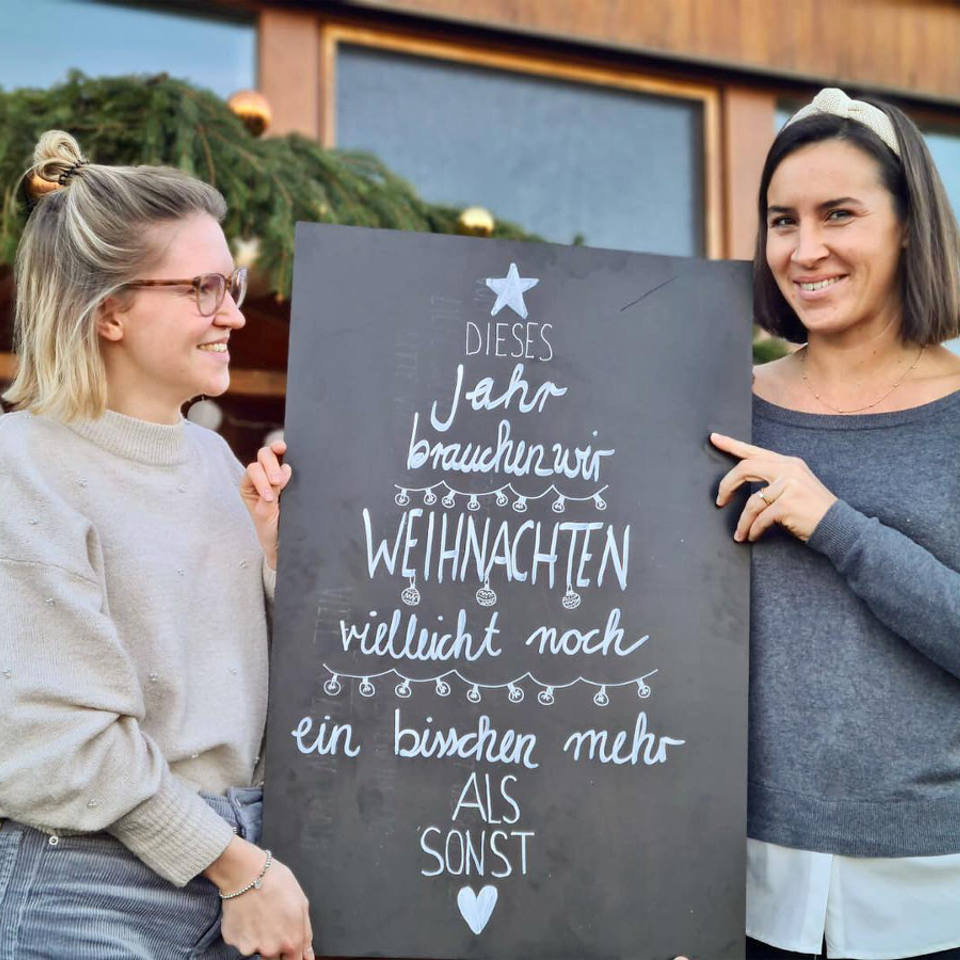 DIESES
Jahr
brauchen wir
WEIHNACHTEN
vielleicht noch
ein bisschen mehr
ALS
SONST